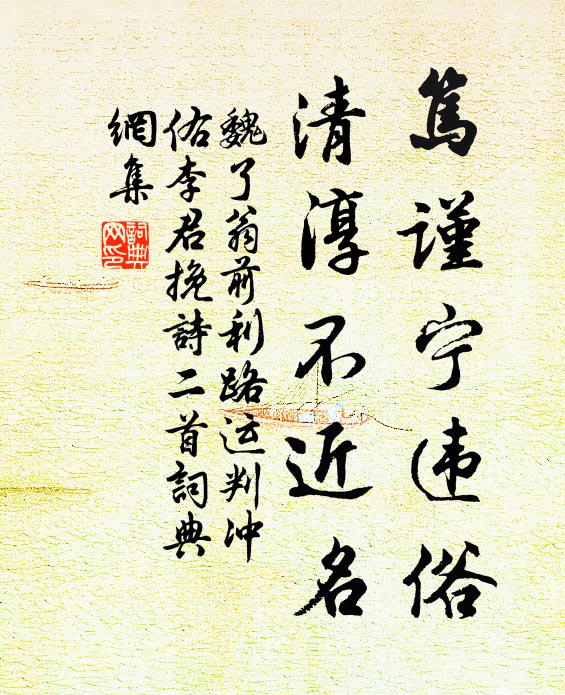 篤謹宁违俗
清淳不近名
魏了翁前利路运判冲
佑李君挽詩二首詞典
網集
詞典
网印